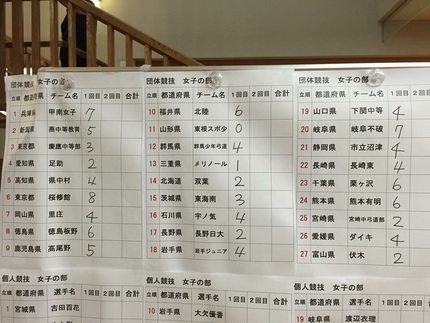 団体競技 女子の部
立順 都道府県 チーム名 1回目 2回目 合計
1 兵庫県 甲南女子 7
2 新潟県 燕中等教育 5
3 東京都 慶應中等部 3
4 愛知県 足助 2
5 高知県 県中村 4
6 東京都 桜修館 8
7 岡山県 里庄 4
8 徳島県 徳島板野 6
9 鹿児島県 高尾野 5
団体競技 女子の部
立順 都道府県 チーム名 1回目 2回目 合計
10 福井県 北陸 6
11 山形県 東根スポ少 0
12 群馬県 群馬少年弓道 4
13 三重県 メリノール 1
14 北海道 双葉 2
15 茨城県 東海南 3
16 石川県 宇ノ気 4
17 長野県 長野日大 2
18 岩手県 岩手ジュニア 4
団体競技 女子の部
立順 都道府県 チーム名 1回目 2回目 合計
19 山口県 下関中等 4
20 岐阜県 岐阜不破 7
21 静岡県 市立沼津 4
22 長崎県 長崎東 4
23 千葉県 栗ヶ沢 6
24 熊本県 熊本有明 6
25 宮崎県 宮崎中弓道部 2
26 愛媛県 ダイキ 4
27 富山県 伏木 2
個人競技 女子の部
立順 都道府県 選手名 1回目 2回目 合計
1 宮城県 吉田百花
個人競技 女子の部
立順 都道府県 選手名 1回目 2回目 合計
10 岩手県 大欠優香
個人競技 女子の部
立順 都道府県 選手名 1回目 2回目 合計
19 岐阜県 渡辺衣理